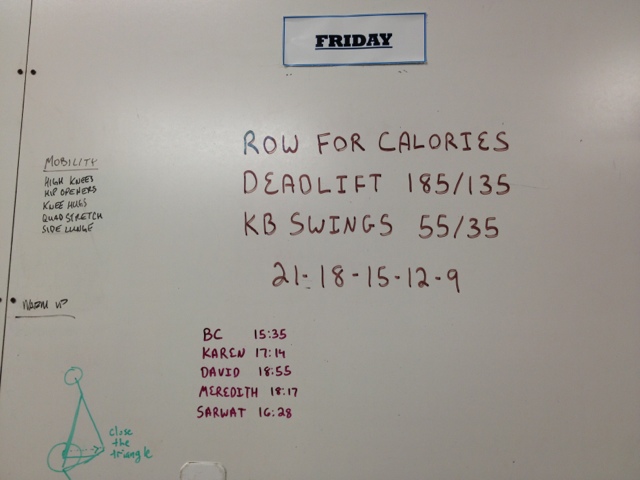 FRIDAY
ROW FOR CALORIES
DEADLIFT 185/135
KB SWINGS 55/35
21-18-15-12-9
MOBILITY
HIGH KNEES
HIP OPENERS
KNEE HUGS
QUAD STRETCH
SIDE LUNGE
WARM UP
BC 15:35
KAREN 17:14
DAVID 18:55
MEREDITH 18:17
SARWAT 16:28
close
the
triangle